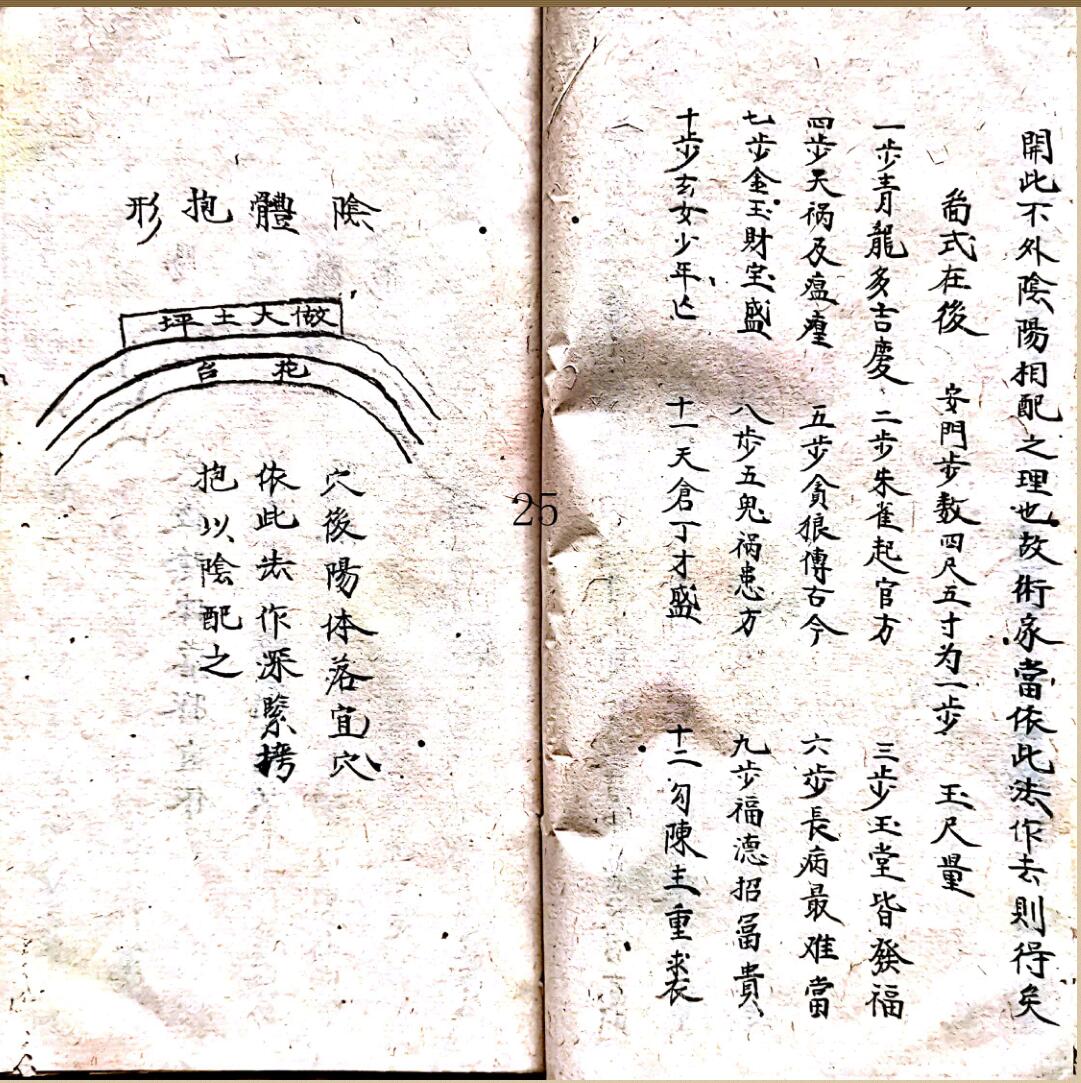 開此不外陰陽相配之理也故術家當依此法作去則得矣
圖式在後 安門步數四尺五寸为一步 玉尺量
一步青龍多吉慶 二步朱雀起官方 三步玉堂皆發福
四步天祸及瘟瘽 五步貪狼傳古今 六步長病最难當
七步金玉財宝盛 八步五鬼祸患方 九步福德招富貴
十步玄女少年亡 十一天倉丁才盛 十二勾陳主重丧
25
陰體抱形
做大土坪
抱台
穴後陽体落宜穴
依此法作深緊拷
抱以陰配之